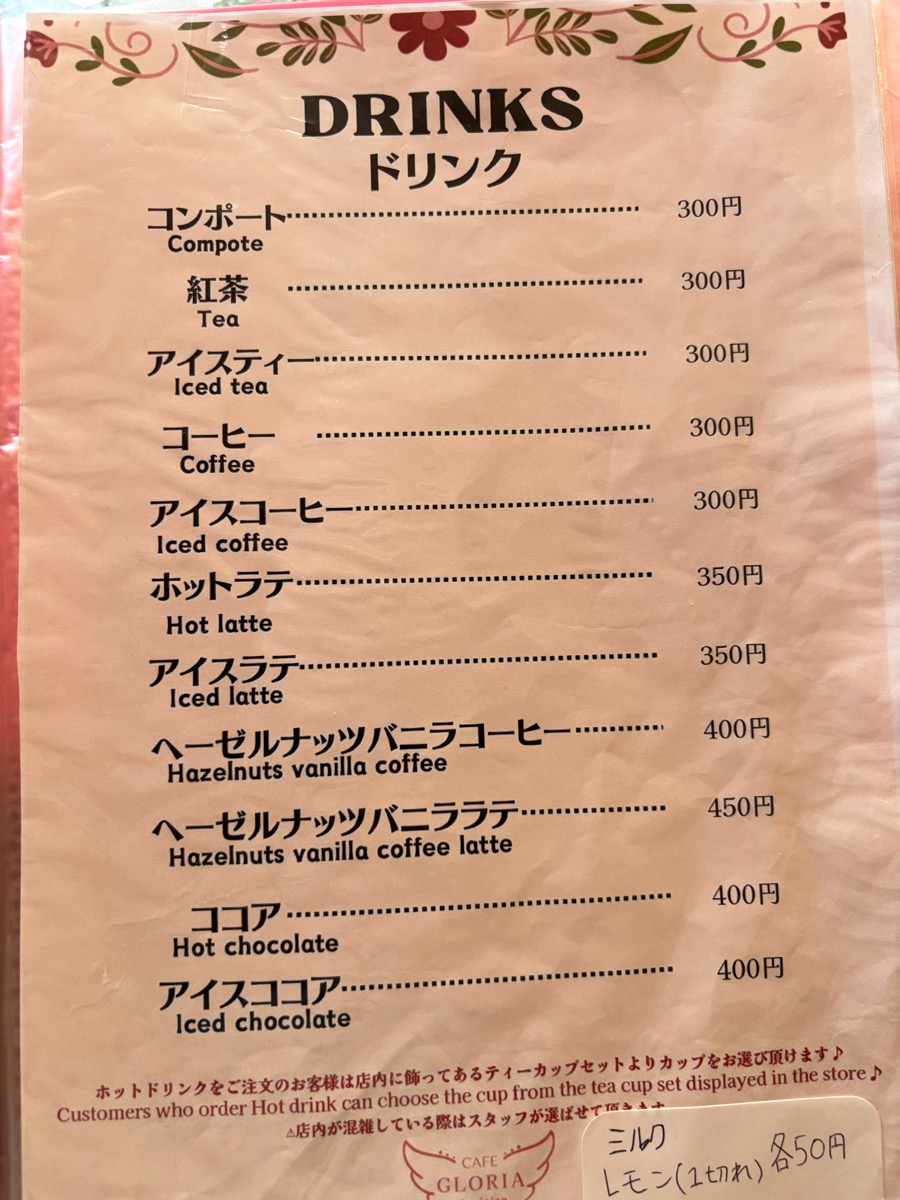 DRINKS
ドリンク
コンポート 300円
Compote
紅茶 300円
Tea
アイスティー 300円
Iced tea
コーヒー 300円
Coffee
アイスコーヒー 300円
Iced coffee
ホットラテ 350円
Hot latte
アイスラテ 350円
Iced latte
ヘーゼルナッツバニラコーヒー 400円
Hazelnuts vanilla coffee
ヘーゼルナッツバニララテ 450円
Hazelnuts vanilla coffee latte
ココア 400円
Hot chocolate
アイスココア 400円
Iced chocolate
ホットドリンクをご注文のお客様は店内に飾ってあるティーカップセットよりカップをお選び頂けます♪
Customers who order Hot drink can choose the cup from the tea cup set displayed in the store♪
⚠店内が混雑している際はスタッフが選ばせて頂きます
CAFE
GLORIA
ミルク
レモン(1切れ) 各50円